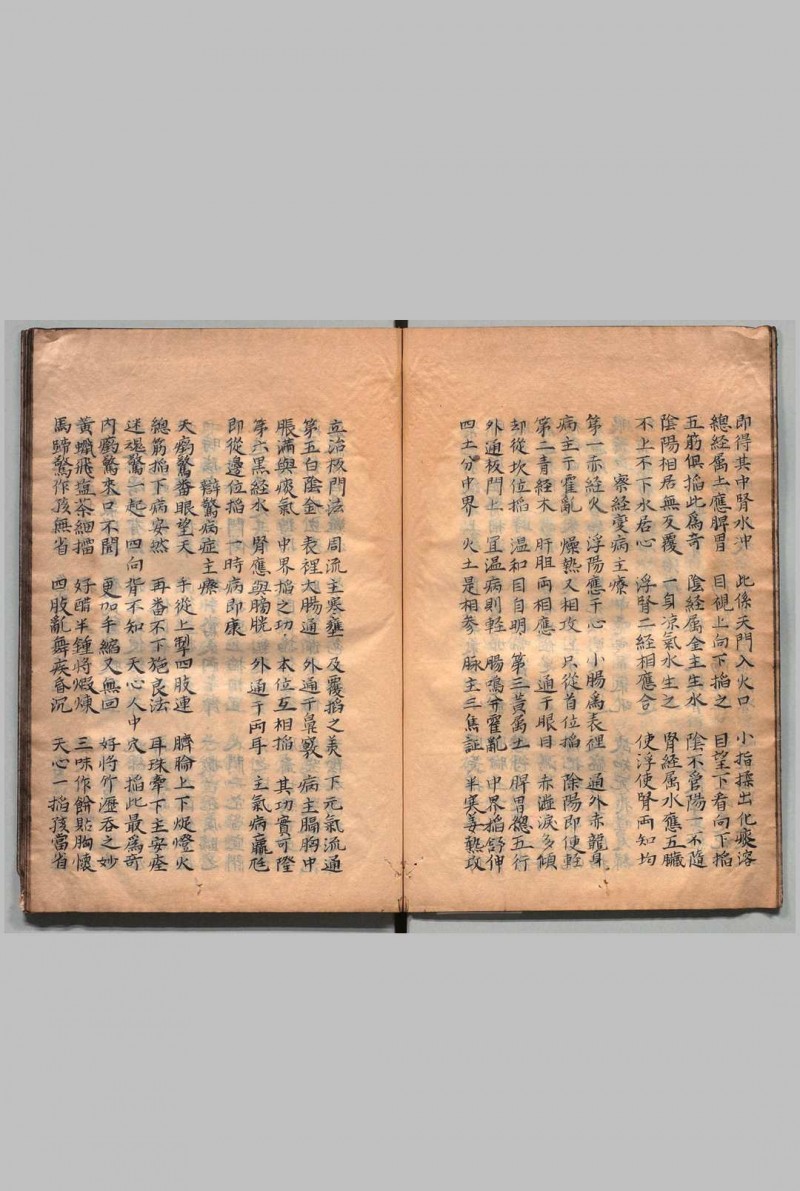 即得其中腎水冲 此係天門入火口 小指揉出化痰溶
總經属土應脾胃 目視上向下掐之 目望下看向下掐
五筋俱掐此爲奇 陰經属金主生水 陰不管陽一不隨
陰陽相居無反覆 一身凉氣水生之 腎經属水應五臟
不上不下水居心 浮腎二經相應合 使浮使腎両知均
察經变病主療
第一赤經火 浮陽應于心 小腸爲表裡 通外赤龍身
病主于霍亂 燥热又相攻 只從首位掐 除陽即便輊
第二青經木 肝胆両相應 通于眼目 赤澁淚多傾
却從坎位掐 温和目自明 第三黃属土 脾胃總五行
外通板門上 冝温病則輊 腸鳴并霍亂 中界掐舒伸
四土分中界 火土是相參 脉主三焦証 半寒姜熱攻
立治板門法 周流主寒壅 及覆掐之美 下元氣流通
第五白陰金 表裡大腸通 外通于鼻竅 病主膈胸中
脹滿與痰氣 中界掐之功 本位互相掐 其功實可隆
第六黑經水 腎應與膀胱 外通于両耳 主氣病羸尫
即從邊位掐 一時病即康
辯驚病症主療
天痫驚番眼望天 手從上掣四肢連 臍腀上下煶燈火
總筋掐下病安然 再番不下施良法 耳珠牽下主安痊
迷魂驚一起四向 背不知天心人中 穴掐此最爲奇
内痫驚来口不開 更加手縮又無回 好将竹瀝吞之妙
黃蠟飛塩茶細擂 好醋半鍾將煅煉 三味作餅貼胸懷
馬蹄驚作孩無省 四肢亂舞疾昏沉 天心一掐孩當省